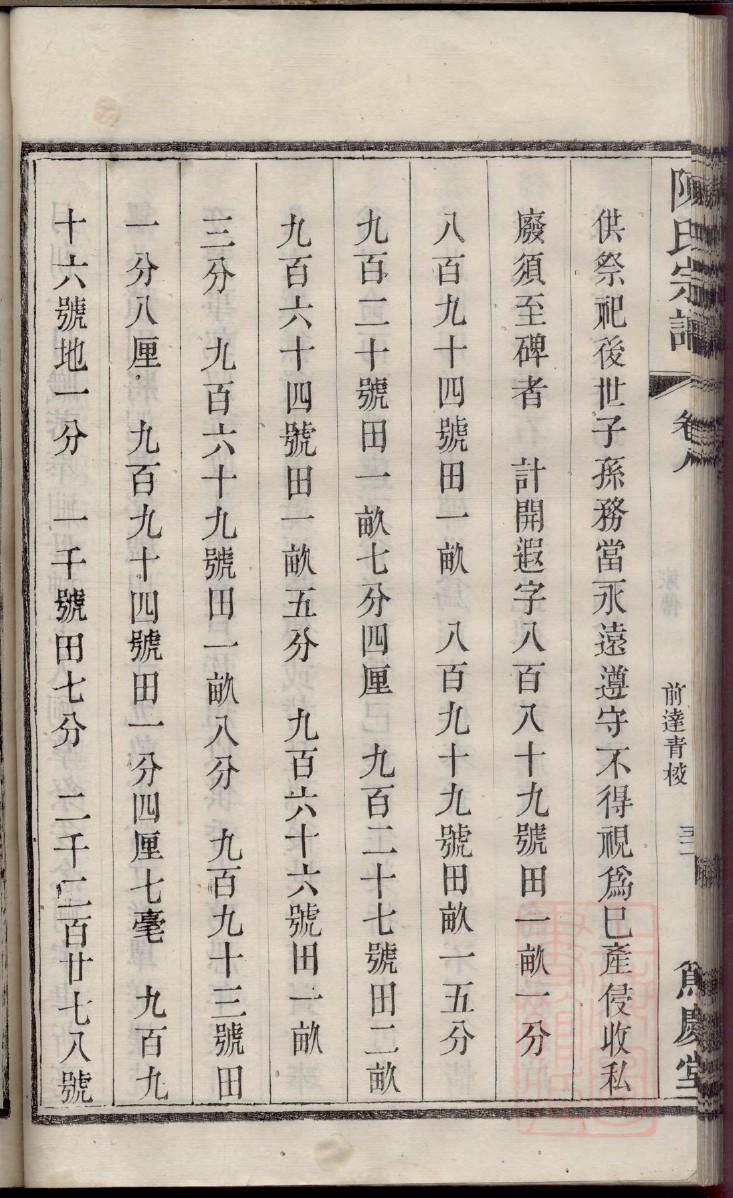 陳氏宗譜 卷八 前達青棱 篤慶堂
供祭祀後世子孫務當永遠遵守不得視爲已產侵收私
廢須至碑者 計開遐字八百八十九號田一畝一分
八百九十四號田一畝 八百九十九號田畝一五分
九百二十號田一畝七分四厘 九百二十七號田二畝
九百六十四號田一畝五分 九百六十六號田一畝
三分 九百六十九號田一畝八分 九百九十三號田
一分八厘 九百九十四號田一分四厘七毫 九百九
十六號地一分 一千號田七分 二千二百廿七八號